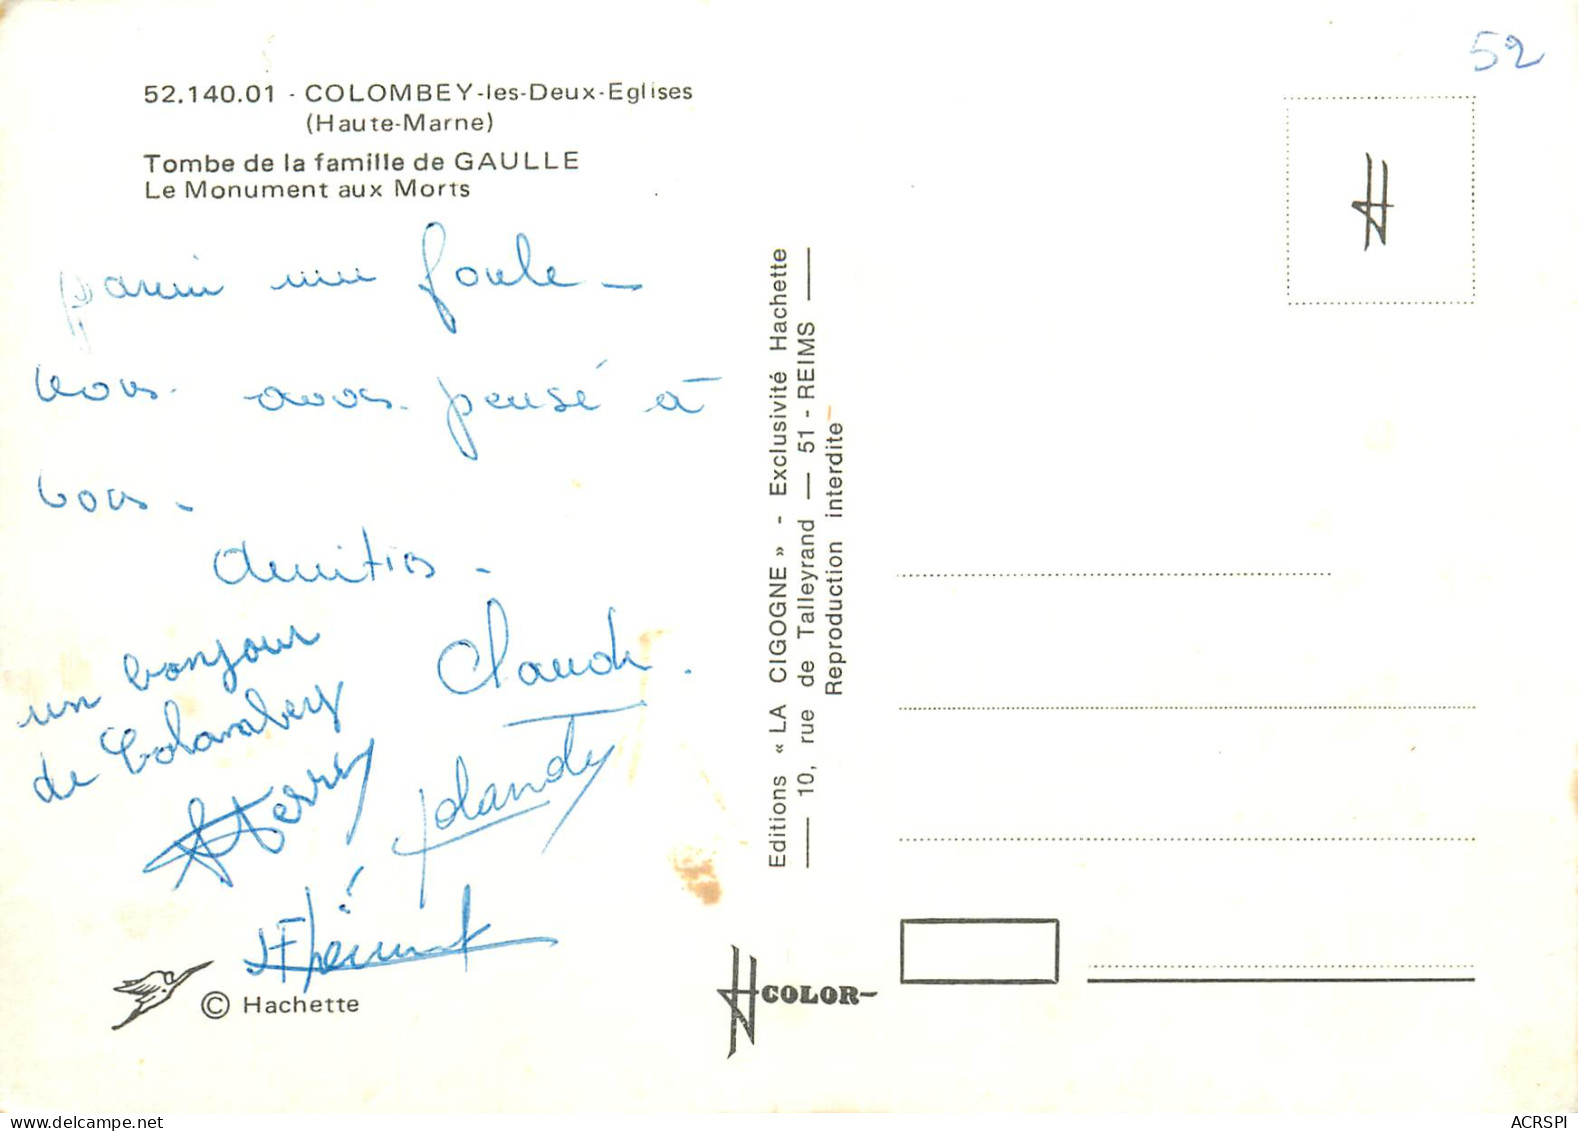 52
52.140.01 - COLOMBEY-les-Deux-Eglises
(Haute-Marne)
Tombe de la famille de GAULLE
Le Monument aux Morts
parmi une foule -
nous avons pensé à
vous -
Amitiés -
Claude.
un bonjour
de Colombey
© Hachette
Editions « LA CIGOGNE » - Exclusivité Hachette
10, rue de Talleyrand — 51 - REIMS
Reproduction interdite
COLOR
ACRSPI